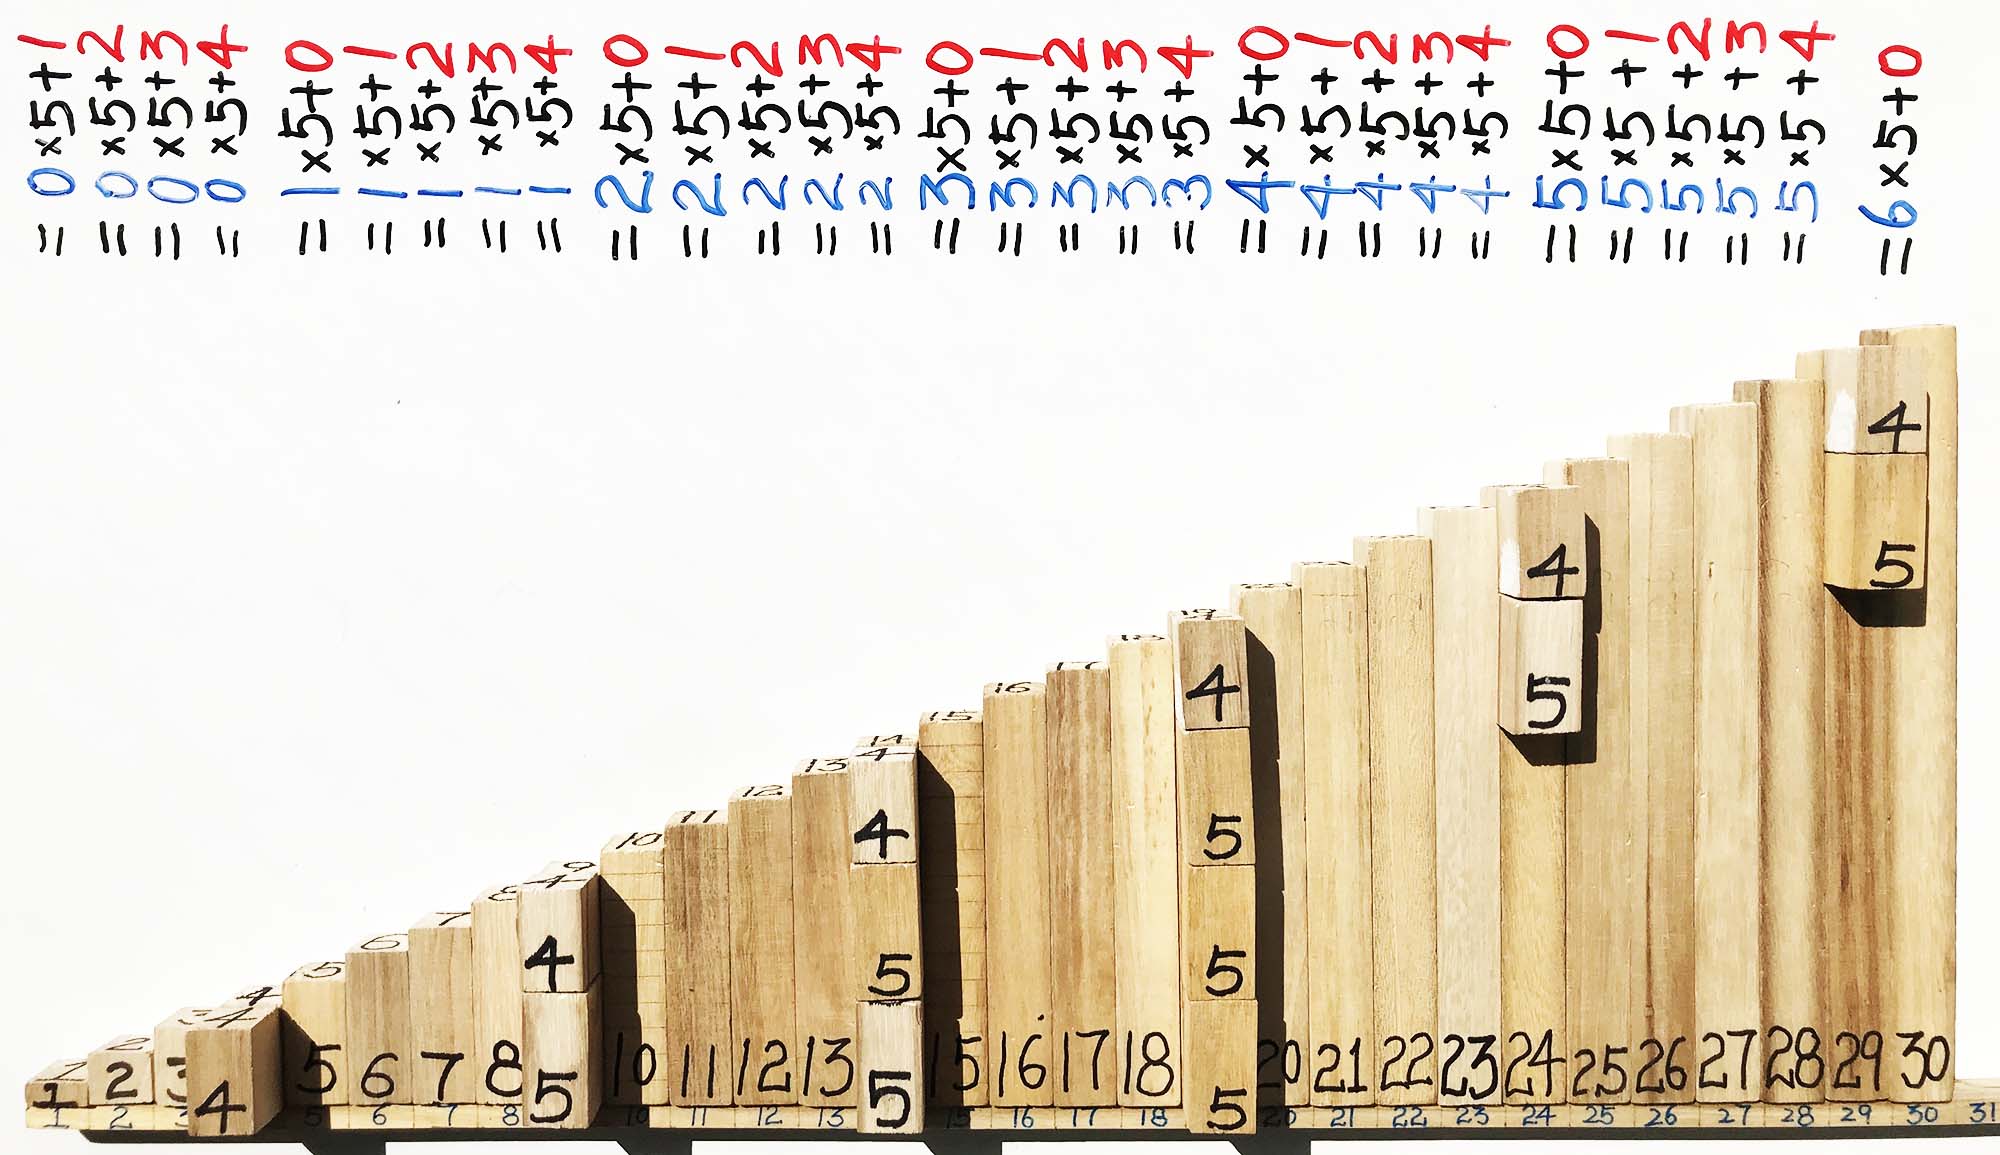 = 0×5+1
= 0×5+2
= 0×5+3
= 0×5+4
= 1×5+0
= 1×5+1
= 1×5+2
= 1×5+3
= 1×5+4
= 2×5+0
= 2×5+1
= 2×5+2
= 2×5+3
= 2×5+4
= 3×5+0
= 3×5+1
= 3×5+2
= 3×5+3
= 3×5+4
= 4×5+0
= 4×5+1
= 4×5+2
= 4×5+3
= 4×5+4
= 5×5+0
= 5×5+1
= 5×5+2
= 5×5+3
= 5×5+4
= 6×5+0
1 2 3 4 5 6 7 8 9 10 11 12 13 14 15 16 17 18 19 20 21
4 4 4 4
4 4 4 4 4
5 5 5 5 5
1 2 3 4 5 6 7 8 5 10 11 12 13 5 15 16 17 18 5 20 21 22 23 24 25 26 27 28 29 30
1 2 3 5 6 7 8 10 11 12 13 15 16 17 18 20 21 22 23 24 25 26 27 28 29 30 31